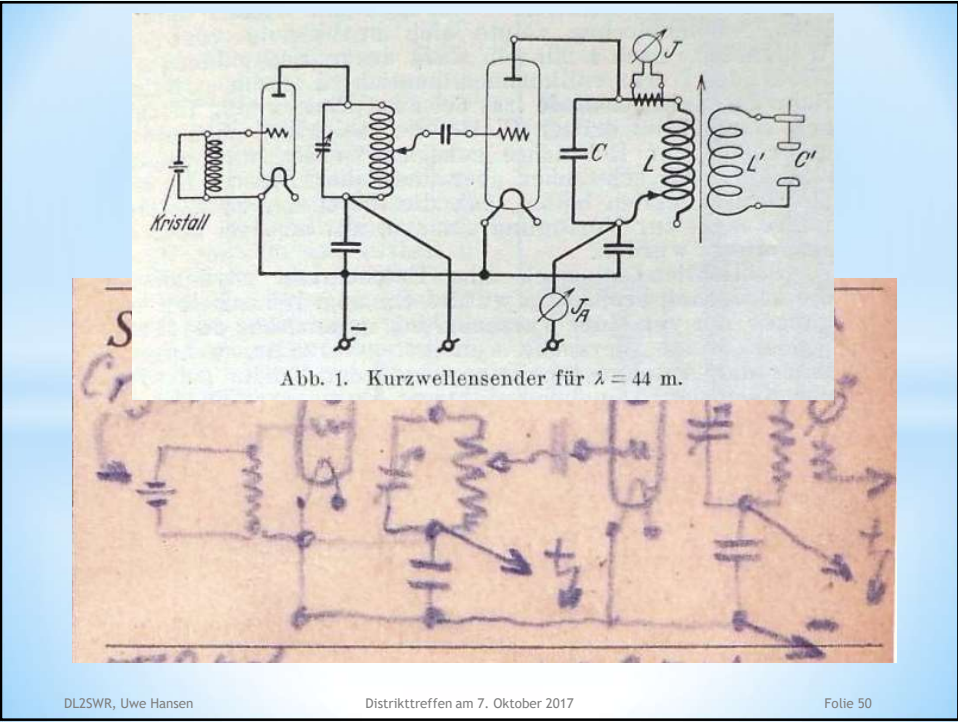 J
C
L
L'
C'
Kristall
JA
–
Abb. 1. Kurzwellensender für λ = 44 m.
S
+
+
-
DL2SWR, Uwe Hansen Distrikttreffen am 7. Oktober 2017 Folie 50